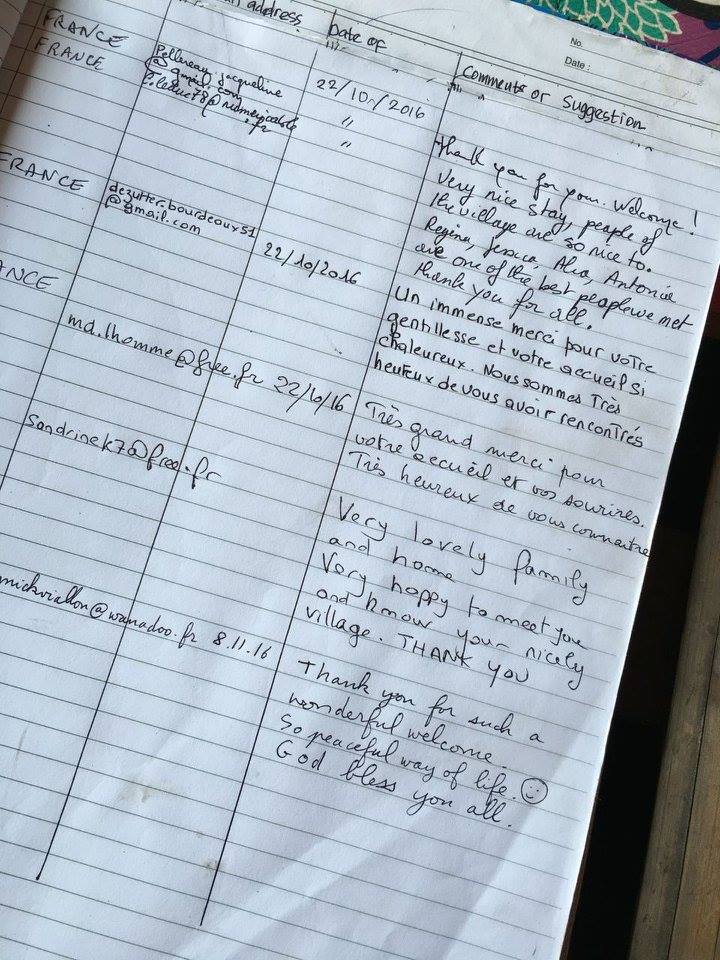 address
Date of
No.
Date:
Comments or Suggestion
FRANCE
FRANCE
jacqueline
@gmail.com
22/10/2016
"
"
Thank you for your welcome!
Very nice stay, people of
the village are so nice to.
Regina, Jessica, Antonia
are one of the best peoplewe met
thank you for all.
FRANCE
dezutter.bourdeaux51
@gmail.com
22/10/2016
Un immense merci pour votre
gentillesse et votre accueil si
chaleureux. Nous sommes Très
heureux de vous avoir rencontrés
ANCE
md.lhomme@free.fr 22/10/16
Très grand merci pour
votre accueil et vos sourires.
Très heureux de vous connaitre
sandrinek7@free.fr
Very lovely family
and home
Very happy to meet you
and know your nicely
village. THANK YOU
mickviallon@wanadoo.fr 8.11.16
Thank you for such a
wonderful welcome.
So peaceful way of life. ☺
God bless you all.